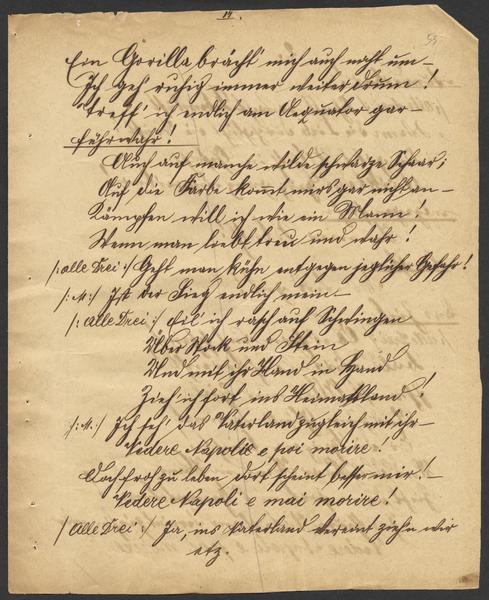 14.
55
Ein Gorilla brächt' mich auch nicht um –
Ich geh' ruhig immer weiter drum!
Treff' ich endlich am Aequator gar –
führwahr!
Auch auf manche wilde schwarze Schaar;
Auf die Farbe kommt mirs gar nicht an –
Kämpfen will ich wie ein Mann!
Wenn man liebt treu und wahr!
/: alle Drei :/ Geht man kühn entgegen jeglicher Gefahr!
/: M :/ Ist der Sieg endlich mein –
/: Alle Drei :/ Eil' ich rasch auf Schwingen
Über Stock und Stein
Und mit ihr Hand in Hand
Zieh' ich fort ins Heimathland!
/: M :/ Ich seh' das Vaterland zugleich mit ihr –
Vedere Napoli e poi morire!
Doch froh zu leben dort scheint besser mir! –
Vedere Napoli e mai morire!
/ Alle Drei :/ Ja, ins Vaterland vereint ziehn wir
etz.